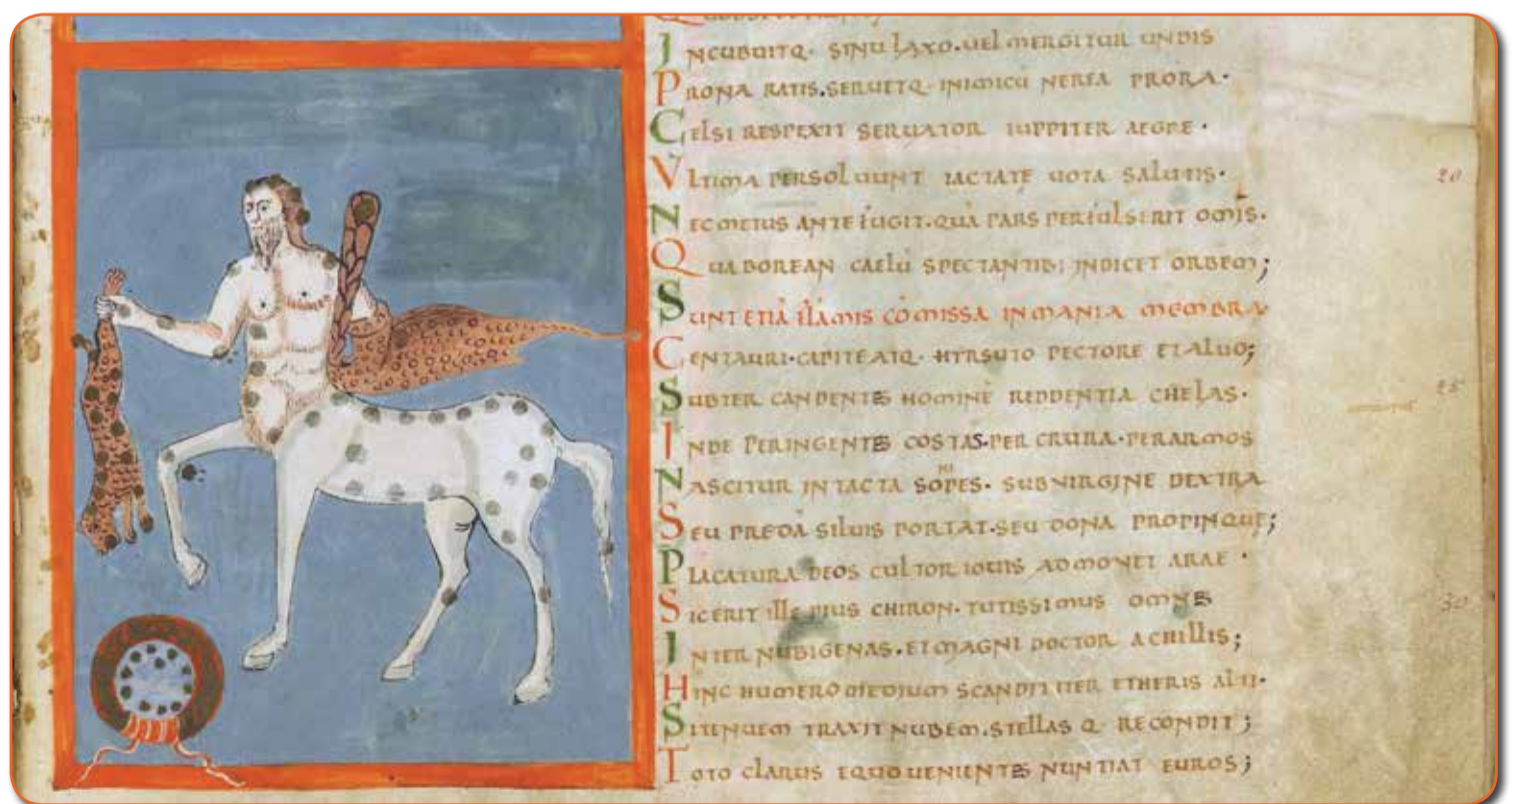 INCUBUITQ· SINU LAXO. UEL MERGITUR UNDIS
PRONA RATIS. SERUETQ· INIMICU NEREA PRORA·
CELSI RESPEXIT SERUATOR IUPPITER AEGRE·
VLTIMA PERSOLUUNT IACTATE UOTA SALUTIS· 20
NEC METUS ANTE FUGIT. QUA PARS PERFULSERIT OMIS.
QUA BOREAN CAELU SPECTANTIB; INDICET ORBEM;
SUNT ETIA FLAMIS COMISSA INMANIA MEMBRA
CENTAURI· CAPITE ATQ· HIRSUTO PECTORE ET ALUO;
SUBTER CANDENTES HOMINE REDDENTIA CHELAS· 25
INDE PERINGENTES COSTAS· PER CRURA· PER ARMOS
NASCITUR INTACTA SOPES· SUB UIRGINE DEXTRA
SEU PREDA SILUIS PORTAT. SEU DONA PROPINQUE;
PLACATURA DEOS CULTOR IOUIS ADMONET ARAE·
SIC ERIT ILLE PIUS CHIRON· TUTISSIMUS OMNES 30
INTER NUBIGENAS. ET MAGNI DOCTOR ACHILLIS;
HINC HUMERO MEDIUM SCANDIT ITER ETHERIS ALTI·
SI TENUEM TRAXIT NUBEM. STELLASQ· RECONDIT;
TOTO CLARUS EQUO UENIENTES NUNTIAT EUROS;